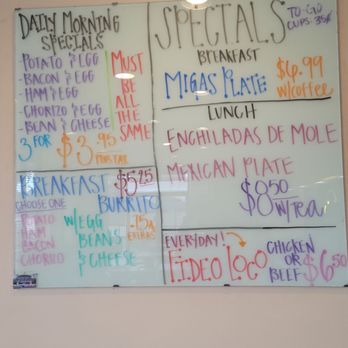 DAILY MORNING
SPECIALS
- POTATO & EGG
- BACON & EGG
- HAM & EGG
- CHORIZO & EGG
- BEAN & CHEESE
MUST
BE
ALL
THE
SAME
3 FOR $3.95
PLUS TAX
BREAKFAST $5.25
BURRITO
CHOOSE ONE
POTATO
HAM
BACON
CHORIZO
W/EGG
BEANS
& CHEESE
.75¢
EXTRAS
SPECIALS
TO-GO
CUPS: 35¢
BREAKFAST
MIGAS PLATE $6.99
W/COFFEE
LUNCH
ENCHILADAS DE MOLE
MEXICAN PLATE
$8.50
W/TEA
EVERYDAY!
FIDEO LOCO
CHICKEN
OR
BEEF $6.50